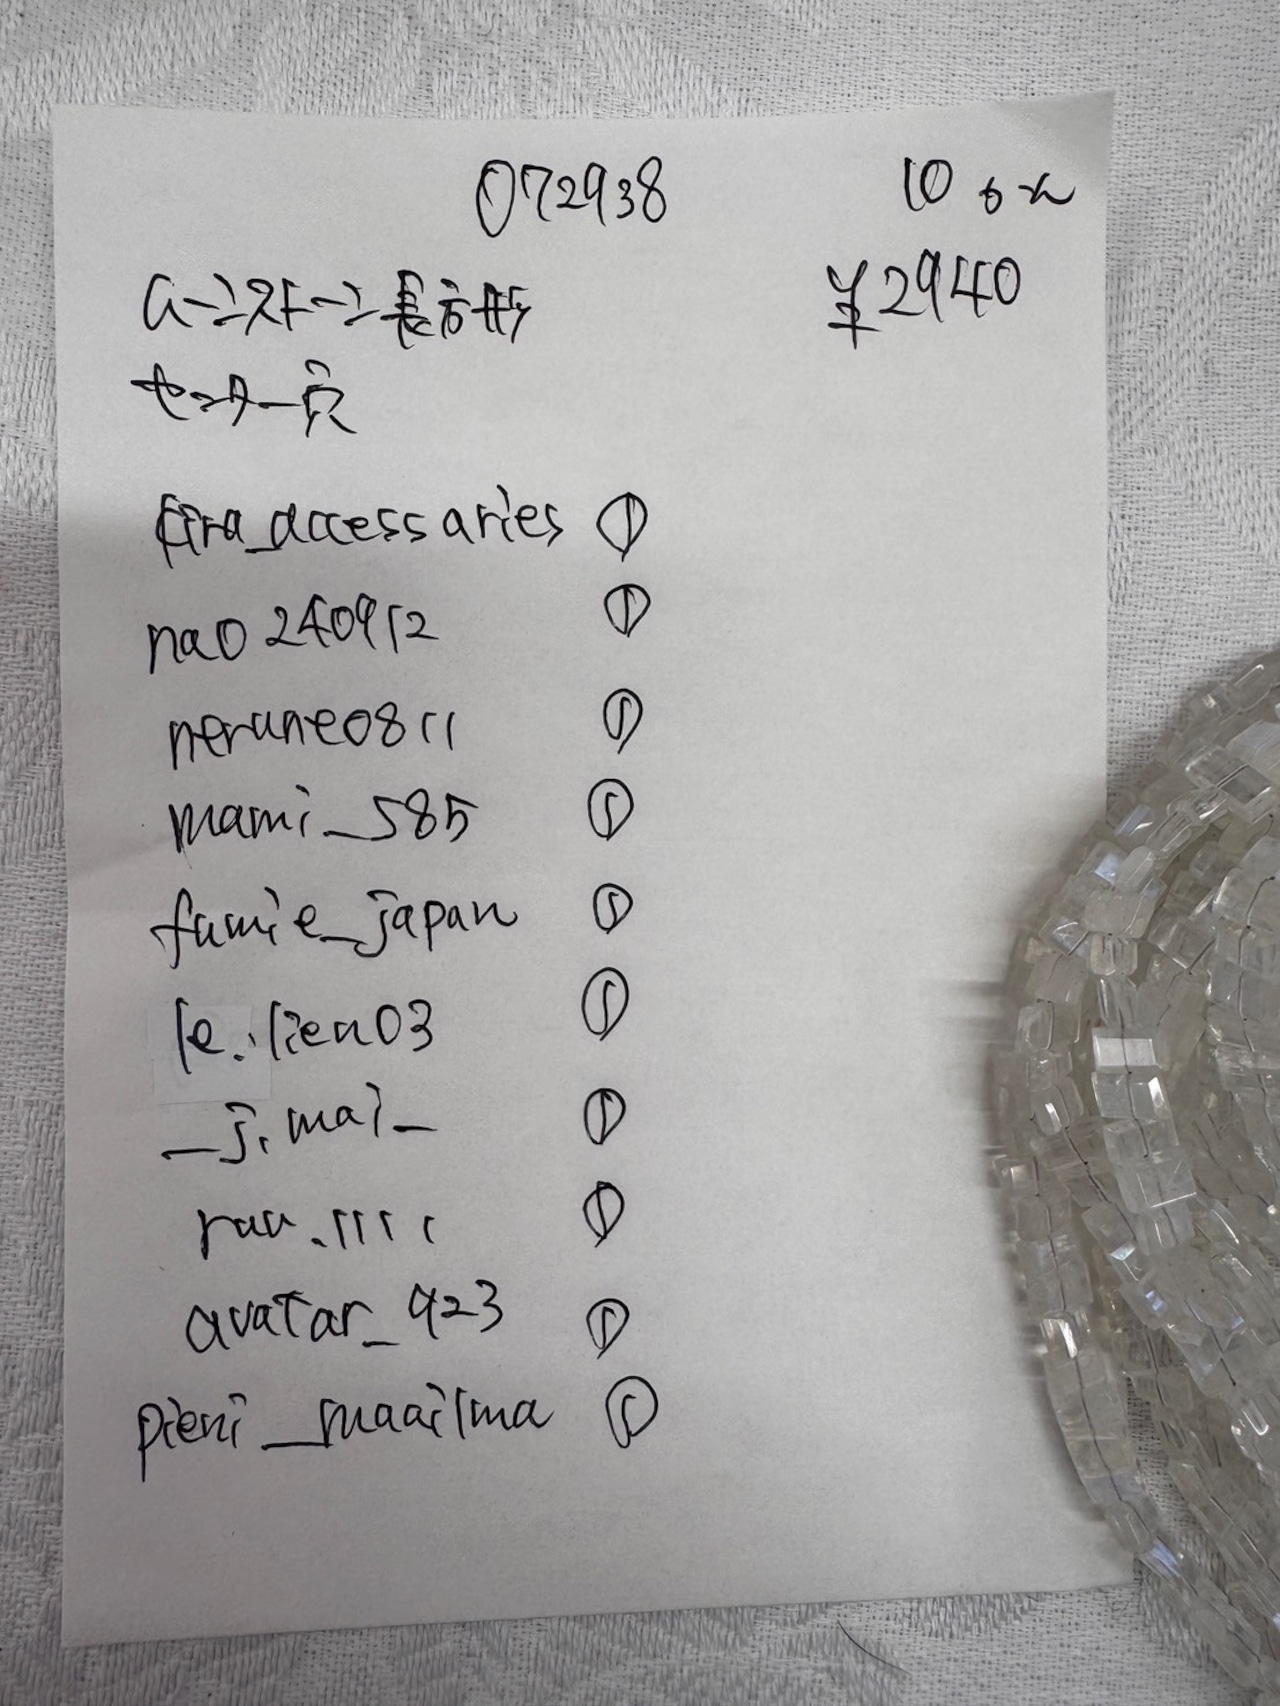 072938 10
ムーンストーン長方形 ¥2940
センター穴
kira_accessaries ①
nao240912 ①
nerune0811 ①
mami_585 ①
fumie_japan ①
le.lien03 ①
_j.mai_ ①
rau.1111 ①
avatar_923 ①
pieni_maailma ①